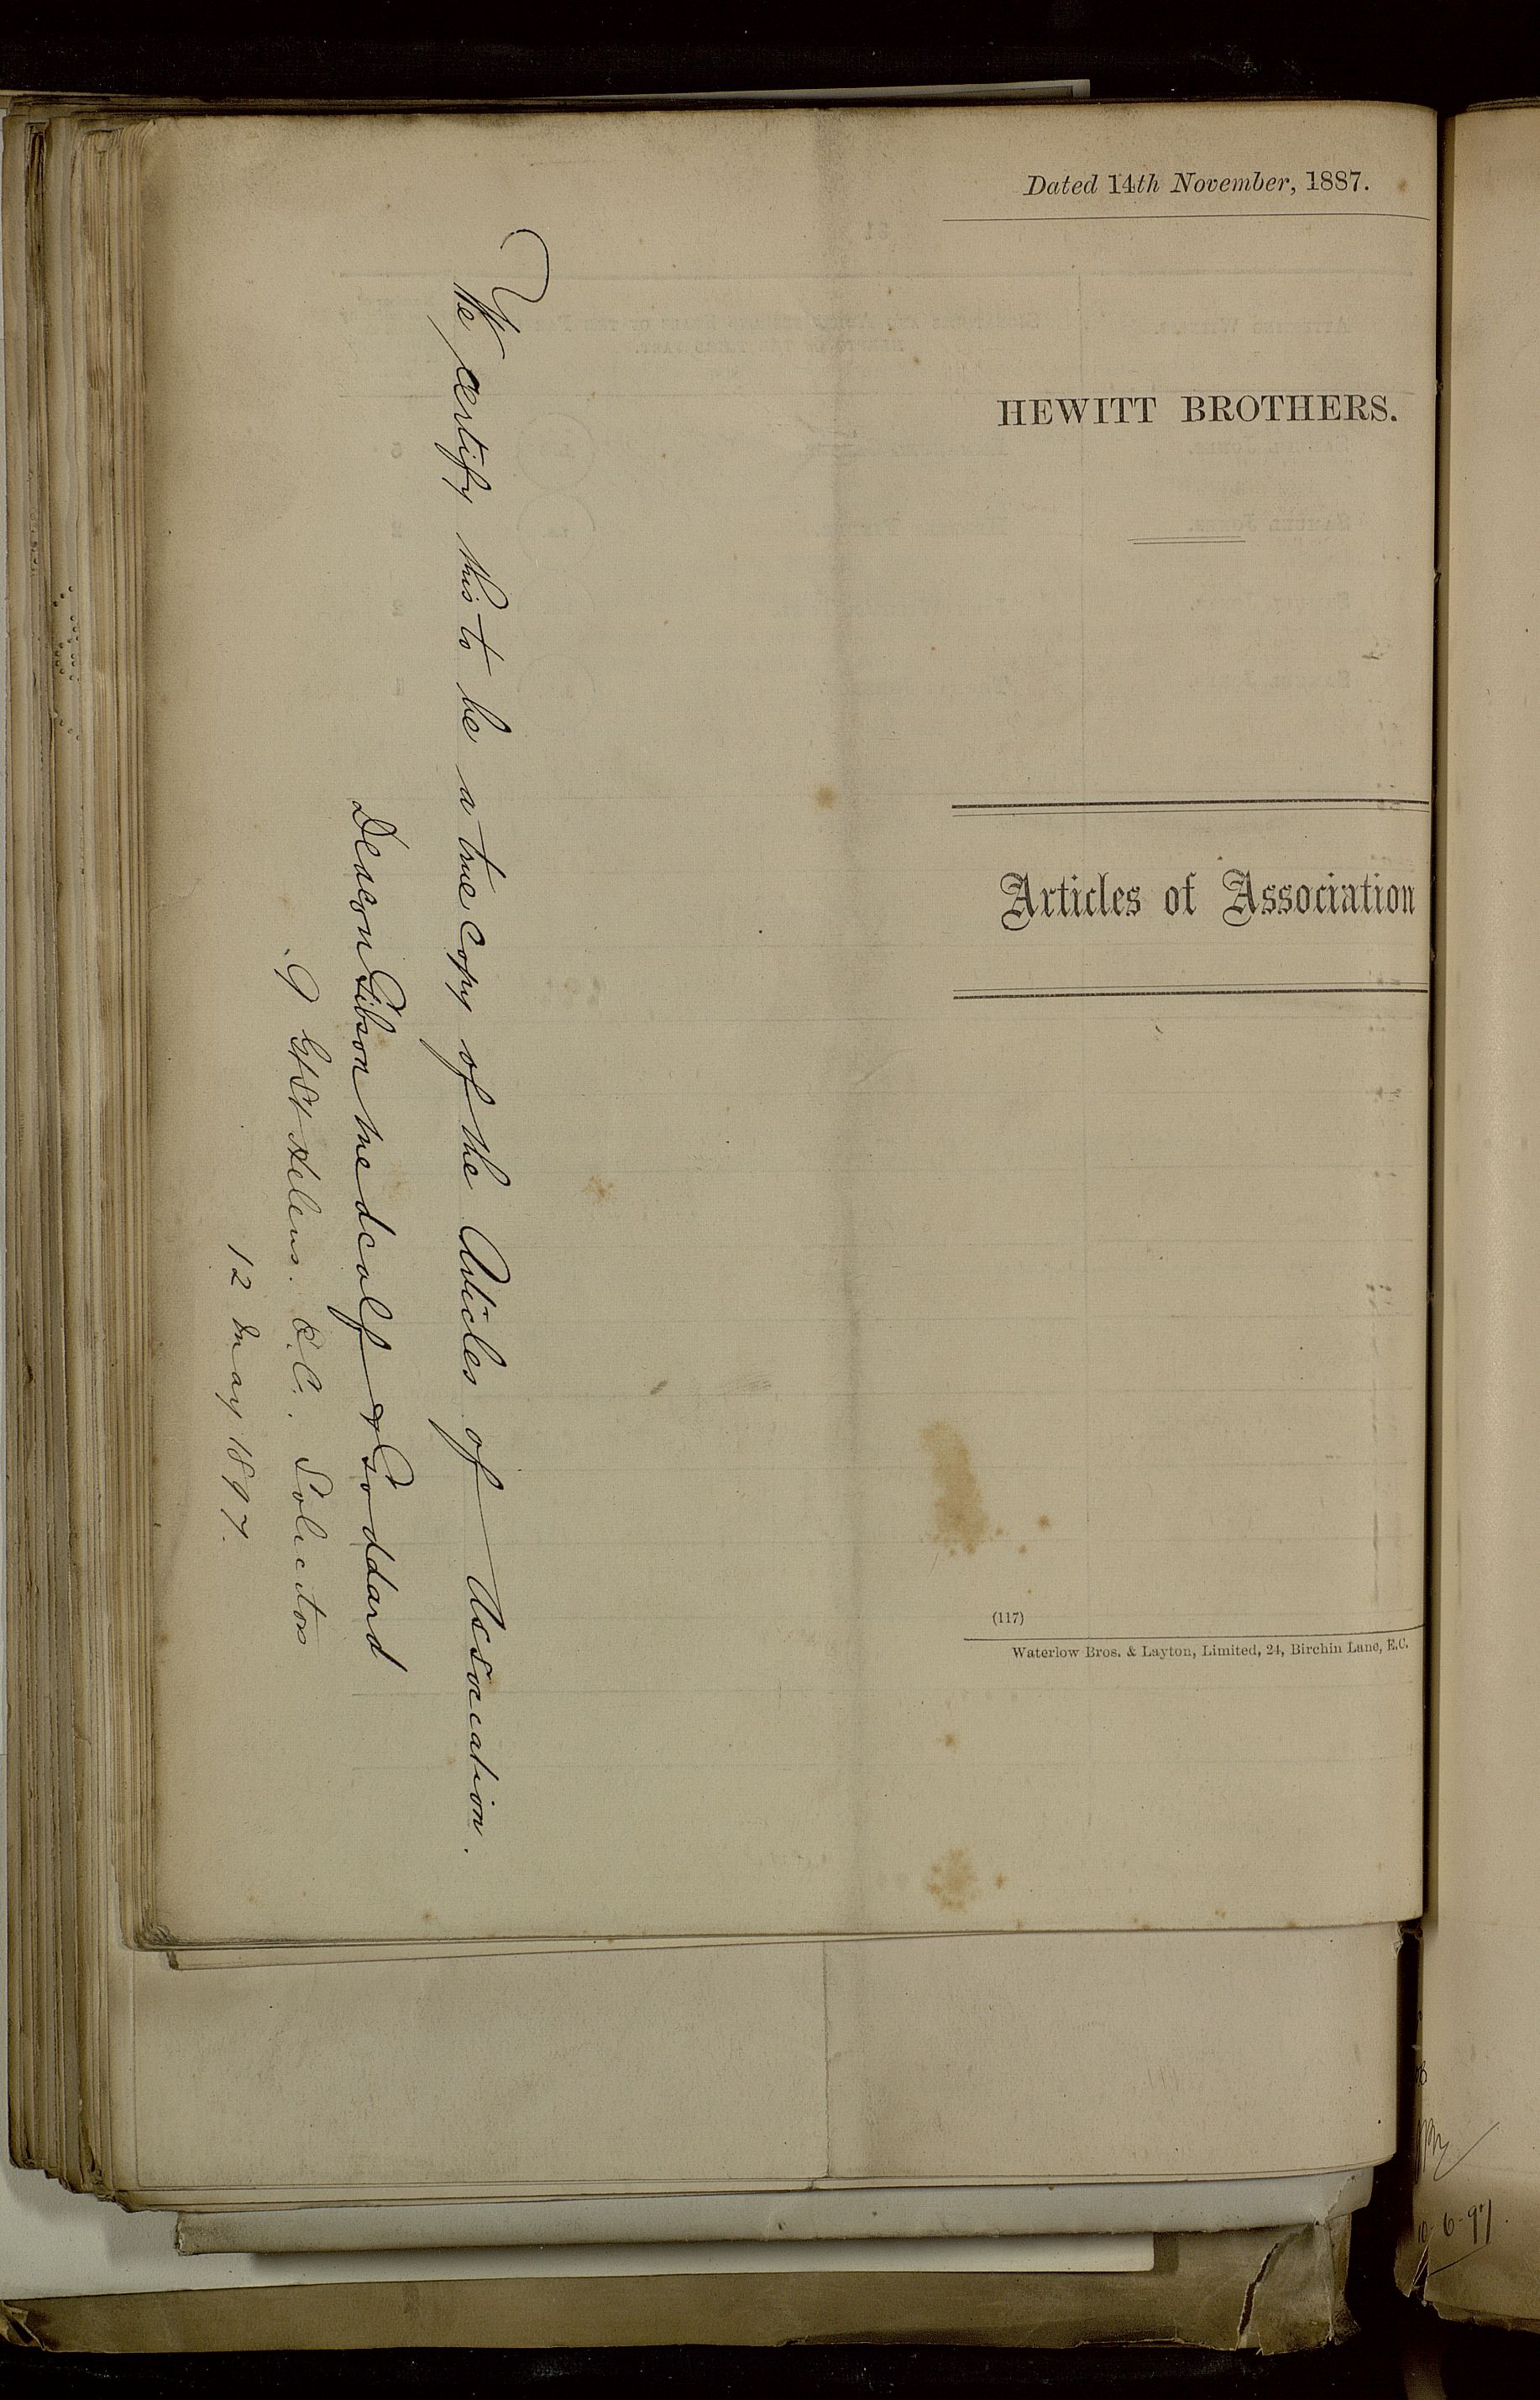 Dated 14th November, 1887.
HEWITT BROTHERS.
Articles of Association
(117)
Waterlow Bros. & Layton, Limited, 24, Birchin Lane, E.C.
We certify this to be a true copy of the Articles of Association.
Deacon Gibson Medcalf & Goddard
9 Gt St Helens. E.C. Solicitors
12 May 1897.
6-97.